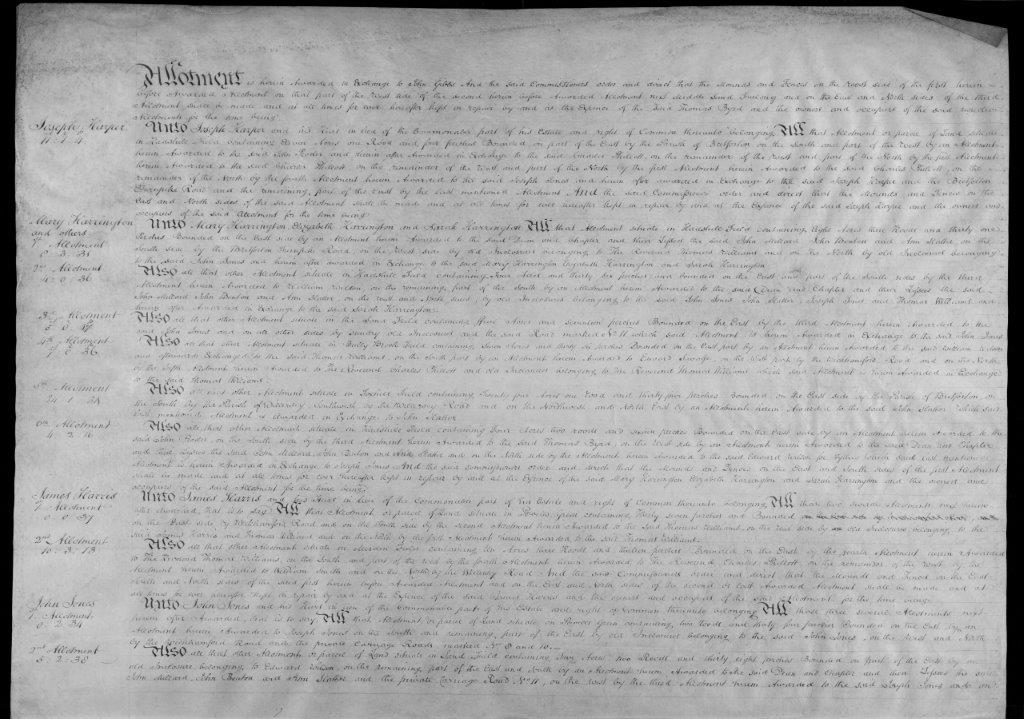 Allotment is herein Awarded in Exchange to John Gibbs And the said Commissioners order and direct that the Mounds and Fences on the West side of the first herein
before Awarded Allotment on that part of the West side of the second herein before Awarded Allotment next Old Inclosures and on the East and North sides of the third
Allotment shall be made and at all times for ever hereafter kept in repair by and at the Expence of the said Thomas Byrd and the owners and occupiers of the said
Allotments for the time being
Joseph Harper
11 " 1 " 4
Unto Joseph Harper and his Heirs in lieu of the Commonable part of his Estate and right of Common thereunto belonging All that Allotment or parcel of Land situate
in Field containing Eleven Acres one Rood and four perches Bounded on part of the East by the Parish of Bretforton on the South and part of the West by an Allotment
herein Awarded to the said John and herein after Awarded in Exchange to the said Charles on the remainder of the West and part of the North by the first Allotment
herein Awarded to the said Charles on the remainder of the East and part of the North by the first Allotment herein Awarded to the said Charles on the
remainder of the North by the fourth Allotment herein Awarded to the said Joseph Jones and herein after awarded in Exchange to the said Joseph Harper and the Bretforton
Turnpike Road and the remaining part of the East by the last mentioned Allotment And the said Commissioners order and direct that the Mounds and Fences on the
East and North sides of the said Allotment shall be made and at all times for ever hereafter kept in repair by and at the Expence of the said Joseph Harper and the owners and
occupiers of the said Allotment for the time being
Mary Harrington
and others
1st Allotment
8 " 3 " 31
Unto Mary Harrington Elizabeth Harrington and Sarah Harrington All that Allotment situate in Field containing Eight Acres three Roods and thirty one
Perches Bounded on the East side by an Allotment herein Awarded to the said Dean and Chapter and their Lessees the said John Millard John Benton and Ann Slatter on the
South side by the Bretforton Turnpike Road on the West side by old Inclosures belonging to the Reverend Thomas Williams and on the North by old Inclosures belonging
to the said John Jones and herein after awarded in Exchange to the said Mary Harrington Elizabeth Harrington and Sarah Harrington
2nd Allotment
4 " 0 " 36
Also all that other Allotment situate in Field containing Four Acres and thirty six perches and bounded on the East and part of the South sides by the third
Allotment herein Awarded to William on the remaining part of the South by an Allotment herein Awarded to the said Dean and Chapter and their Lessees the said
John Millard John Benton and Ann Slatter on the West and North sides by old Inclosures belonging to the said John Jones John Slatter Joseph Jones and Thomas Williams and
herein after Awarded in Exchange to the said Sarah Harrington
3rd Allotment
5 " 0 " 17
Also all that other Allotment situate in the Sand Field containing five Acres and seventeen perches Bounded on the East by the third Allotment herein Awarded to the
said John Jones and on all other sides by sundry old Inclosures and the said Road marked No. 11 which said Allotment is herein Awarded in Exchange to the said John Jones
4th Allotment
7 " 0 " 36
Also all that other Allotment situate in Brook Field containing Seven Acres and thirty six perches Bounded on the East part by an Allotment herein Awarded to the said William
and afterwards Exchanged to the said Thomas Williams on the South part by an Allotment herein Awarded to Edward on the West part by the Wickhamford Road and on the North
by the fifth Allotment herein Awarded to The Reverend Charles and old Inclosures belonging to the Reverend Thomas Williams which said Allotment is herein Awarded in Exchange
to the said Thomas Williams
5th Allotment
24 " 1 " 34
Also all that other Allotment situate in Field containing Twenty four Acres one Rood and thirty four perches Bounded on the East side by the Parish of Bretforton on
the South by the Parish of Southwards by the Road and on the Northwest and North East by an Allotment herein Awarded to the said John Slatter which said
last mentioned Allotment is awarded in Exchange to John Slatter
6th Allotment
4 " 2 " 16
Also all that other Allotment situate in Field containing Four Acres two roods and sixteen perches Bounded on the East side by an Allotment herein Awarded to the
said John on the South side by the third Allotment herein Awarded to the said Thomas Byrd on the West side by an Allotment herein Awarded to the said Dean and Chapter
and their Lessees the said John Millard John Benton and Ann Slatter and on the North side by the Allotment herein Awarded to the said Edward Wilson for Tythes which said last mentioned
Allotment is herein Awarded in Exchange to Joseph Jones And the said commissioners order and direct that the Mounds and Fences on the East and South sides of the first Allotment
shall be made and at all times for ever hereafter kept in repair by and at the Expence of the said Mary Harrington Elizabeth Harrington and Sarah Harrington and the owners and
occupiers of the said Allotment for the time being
James Harris
1st Allotment
0 " 0 " 37
Unto James Harris and his Heirs in lieu of the Commonable part of his Estate and right of Common thereunto belonging All those two several Allotments next herein
after Awarded, that is to say All that Allotment or parcel of Land situate in Green containing Thirty seven perches and Bounded
on the East side by Wickhamford Road and on the South side by the second Allotment herein Awarded to the said Thomas Williams on the West side by old Inclosures belonging to the
said James Harris and Thomas Williams and on the North by the first Allotment herein Awarded to the said Thomas Williams
2nd Allotment
10 " 3 " 13
Also all that other Allotment situate in Field containing Ten Acres three Roods and thirteen perches Bounded on the East by the fourth Allotment herein Awarded
to The Reverend Thomas Williams on the South and part of the West by the fourth Allotment herein Awarded to the Reverend Charles on the remainder of the West by the
Allotment herein Awarded to William Smith and on the North by the Road And the said Commissioners order and direct that the Mounds and Fences on the East
South and North sides of the said first herein before Awarded Allotment and on the East and South sides of the second or last Allotment shall be made and at
all times for ever hereafter kept in repair by and at the Expence of the said James Harris and the owners and occupiers of the said Allotment for the time being
John Jones
1st Allotment
0 " 2 " 34
Unto John Jones and his Heirs in lieu of the Commonable part of his Estate and right of Common thereunto belonging All those three several Allotments next
herein after Awarded, that is to say All that Allotment or parcel of Land situate on Green containing two Roods and thirty four perches Bounded on the East by an
Allotment herein Awarded to Joseph Jones on the South and remaining part of the East by old Inclosures belonging to the said John Jones, on the West and North
by the Wickhamford Road and the private Carriage Roads marked No. 9 and 10
2nd Allotment
5 " 2 " 38
Also all that other Allotment or parcel of Land situate in Sand Field containing Five Acres two Roods and thirty eight perches Bounded on part of the East by an
old Inclosure belonging to Edward Wilson on the remaining part of the East and South by an Allotment herein Awarded to the said Dean and Chapter and their Lessees the said
John Millard John Benton and Ann Slatter and the private Carriage Road No. 11, on the West by the third Allotment herein Awarded to the said Joseph Jones and on